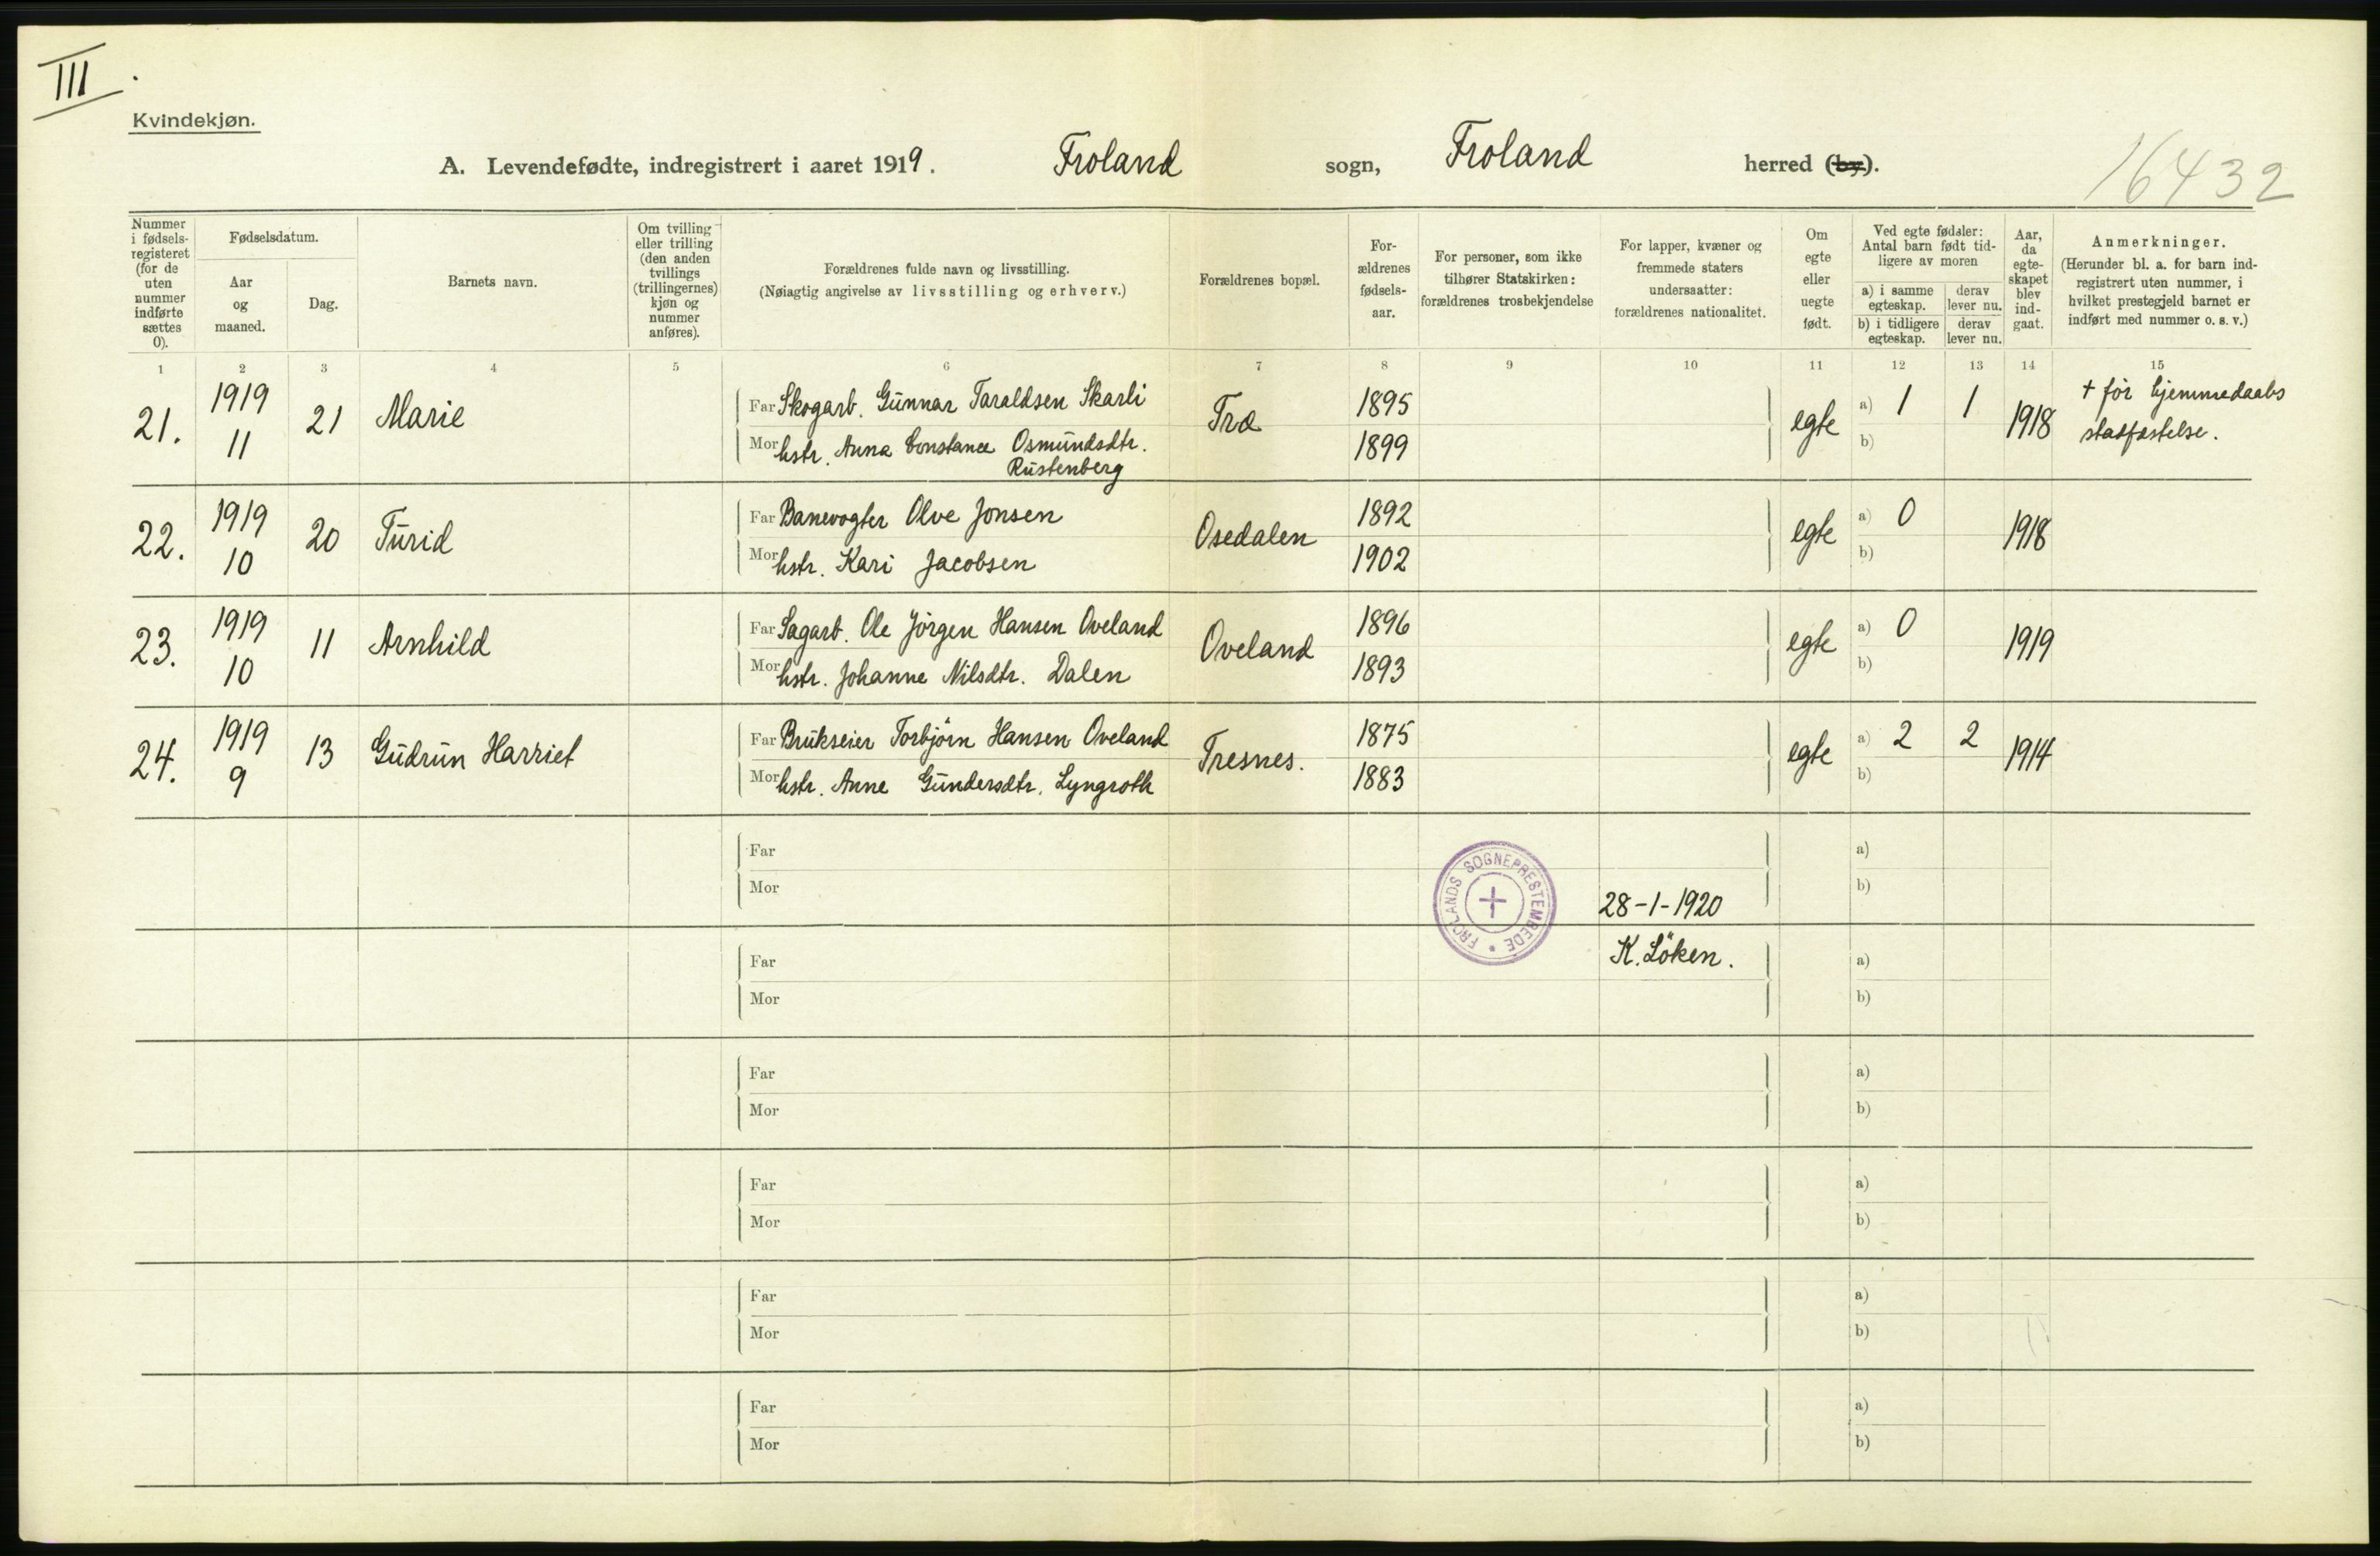 III.
Kvindekjøn.
A. Levendefødte, indregistrert i aaret 1919. Froland sogn, Froland herred (by).
16432
Nummer i fødsels-registeret (for de uten nummer indførte sættes 0).
Fødselsdatum.
Aar og maaned.
Dag.
Barnets navn.
Om tvilling eller trilling (den anden tvillings (trillingernes) kjøn og nummer anføres).
Forældrenes fulde navn og livsstilling.
(Nøiagtig angivelse av livsstilling og erhverv.)
Forældrenes bopæl.
For-ældrenes fødsels-aar.
For personer, som ikke tilhører Statskirken: forældrenes trosbekjendelse
For lapper, kvæner og fremmede staters undersaatter: forældrenes nationalitet.
Om egte eller uegte født.
Ved egte fødsler: Antal barn født tid-ligere av moren
a) i samme egteskap.
derav lever nu.
b) i tidligere egteskap.
derav lever nu.
Aar, da egte-skapet blev ind-gaat.
Anmerkninger.
(Herunder bl. a. for barn ind-registrert uten nummer, i hvilket prestegjeld barnet er indført med nummer o. s. v.)
1 2 3 4 5 6 7 8 9 10 11 12 13 14 15
21. 1919 11 21 Marie
Far Skogarb. Gunnar Taraldsen Skarli
Mor hstr. Anna Constance Osmundsdtr. Rustenberg
Træ 1895 1899 egte a) 1 1 b) 1918
+ før hjemmedaabs stadfæstelse.
22. 1919 10 20 Turid
Far Banevogter Olve Jonsen
Mor hstr. Kari Jacobsen
Osedalen 1892 1902 egte a) 0 b) 1918
23. 1919 10 11 Arnhild
Far Sagarb. Ole Jörgen Hansen Oveland
Mor hstr. Johanne Nilsdtr. Dalen
Oveland 1896 1893 egte a) 0 b) 1919
24. 1919 9 13 Gudrun Harriet
Far Brukseier Torbjörn Hansen Oveland
Mor hstr. Anne Gundersdtr. Lyngroth
Tresnes. 1875 1883 egte a) 2 2 b) 1914
Far a)
Mor b)
FROLANDS SOGNEPRESTEMBEDE
28-1-1920
K. Löken.
Far a)
Mor b)
Far a)
Mor b)
Far a)
Mor b)
Far a)
Mor b)
Far a)
Mor b)